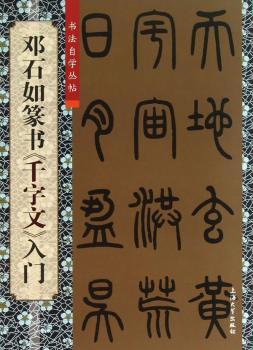 书法自学丛帖
邓石如篆书《千字文》入门
天地玄黃
宇宙洪荒
日月盈昃
上海大学出版社